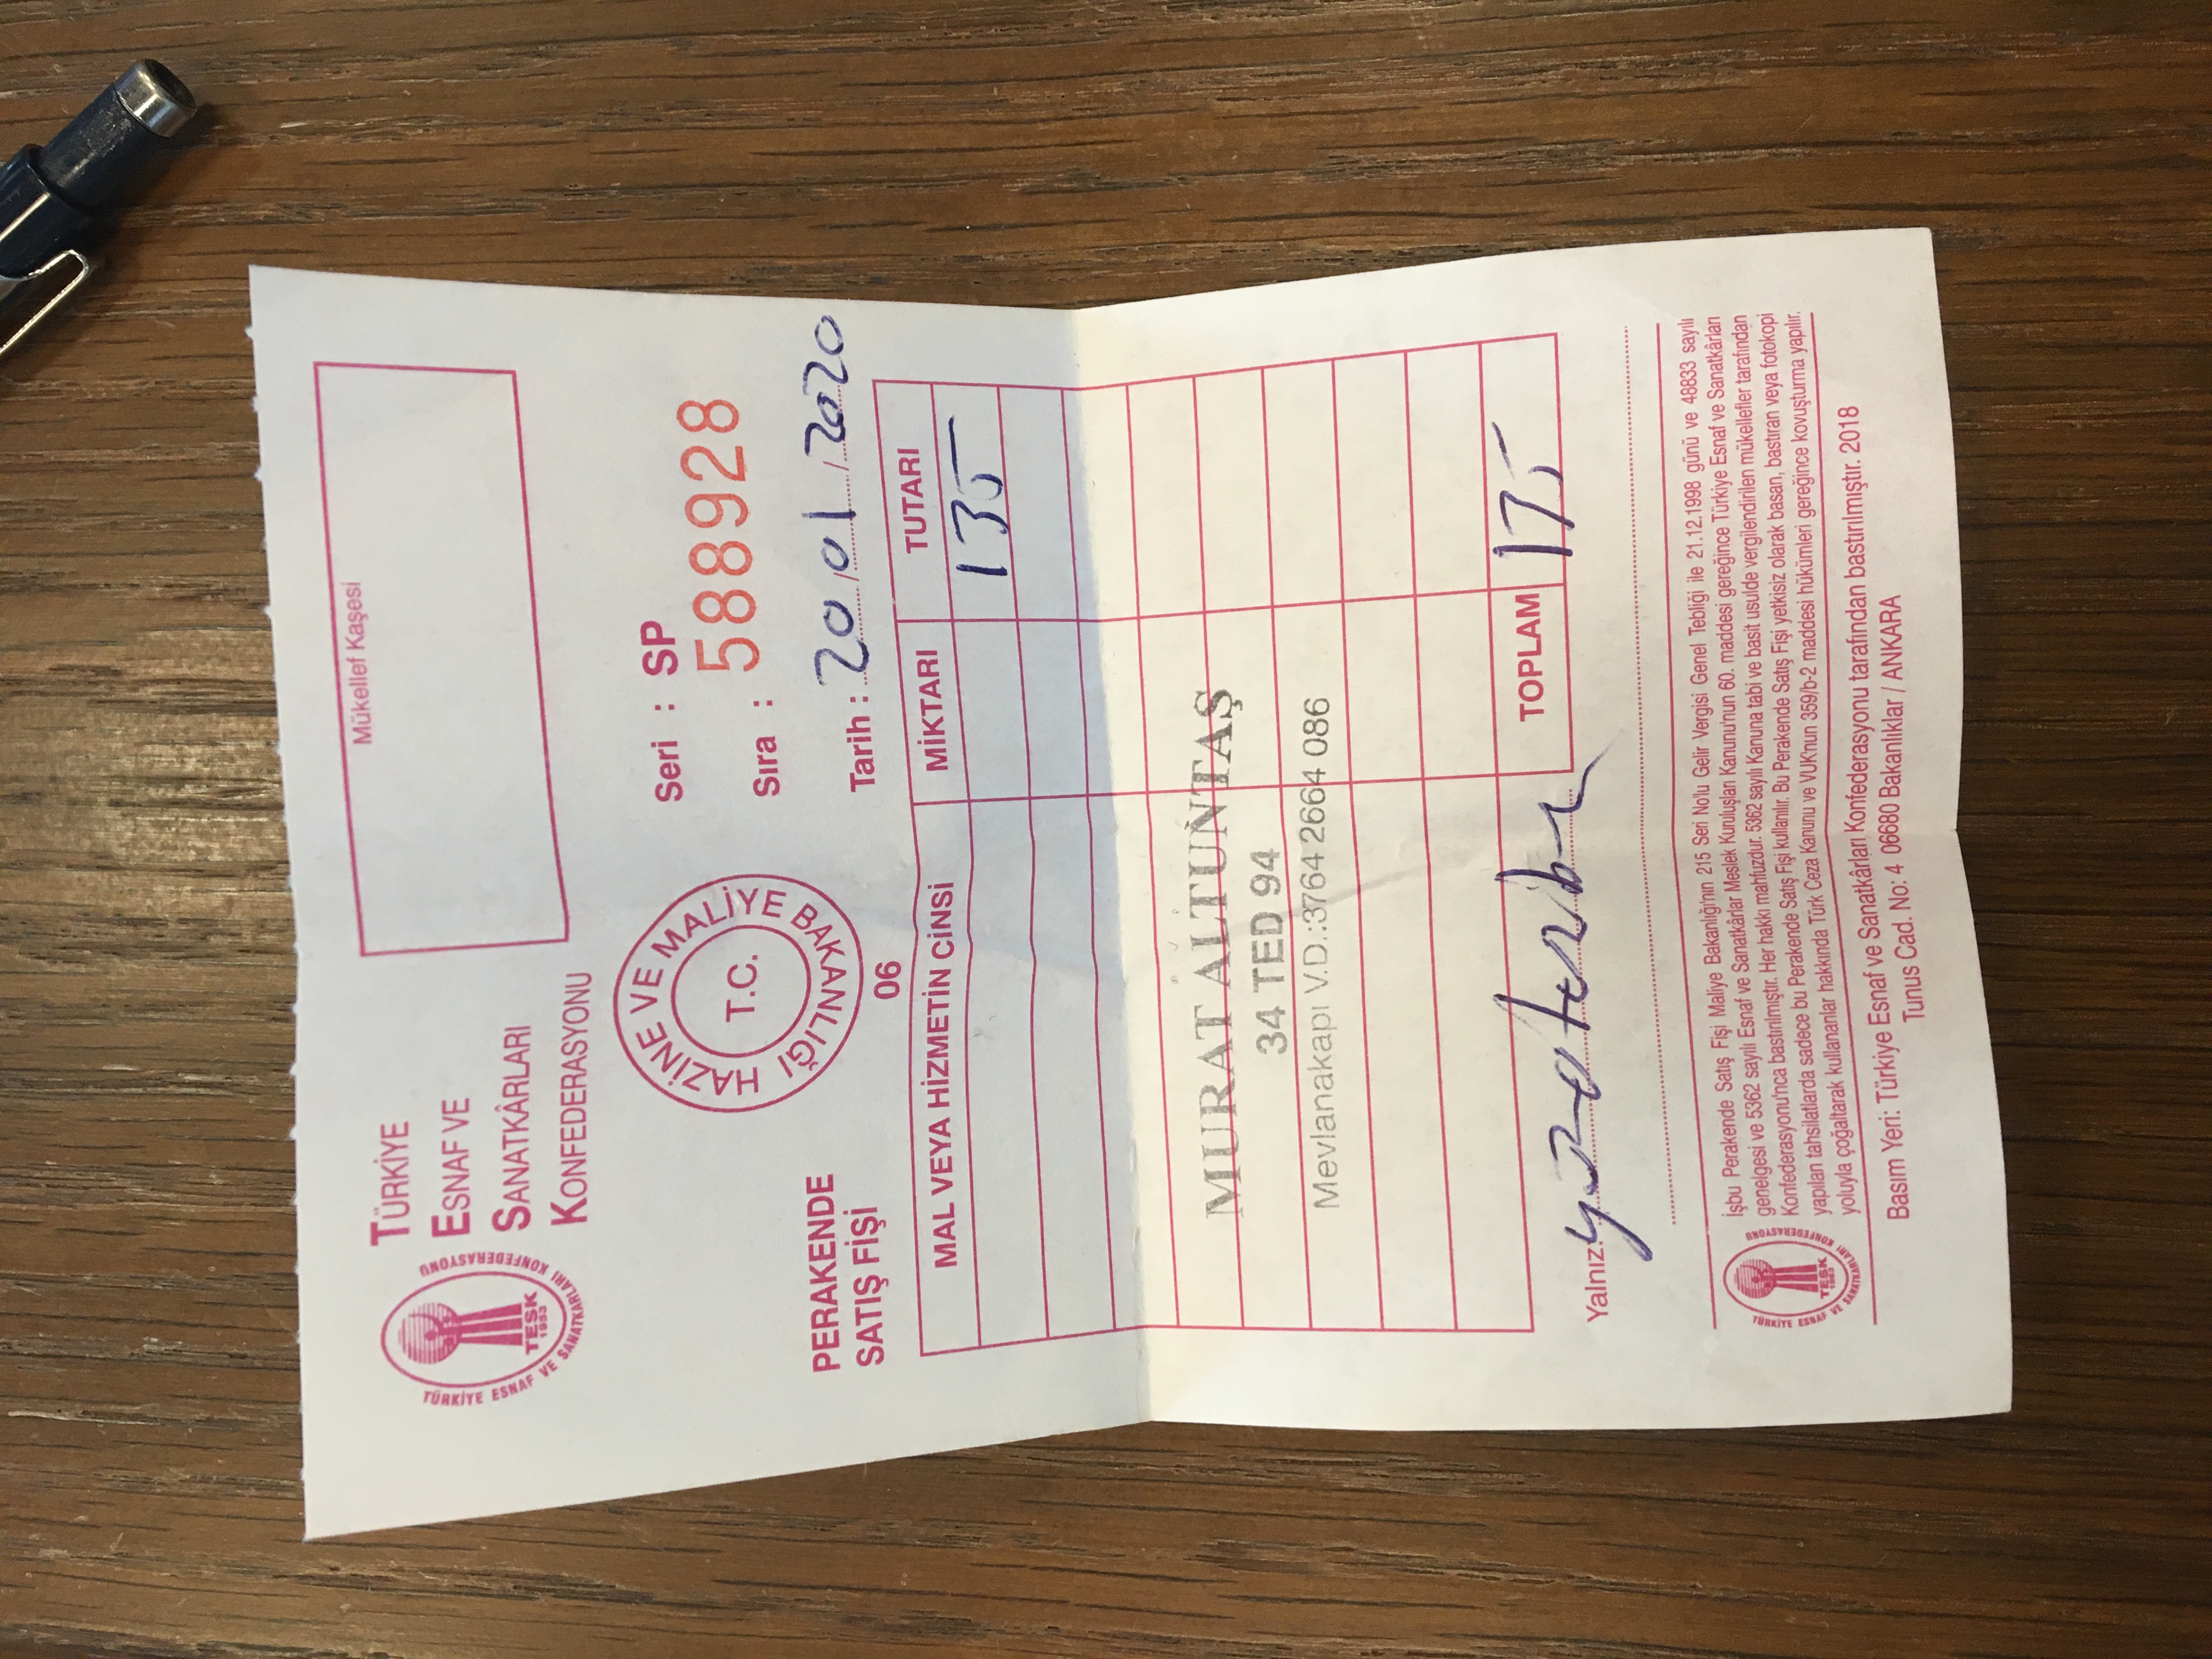 TÜRKİYE
ESNAF VE
SANATKÂRLARI
KONFEDERASYONU
TÜRKİYE ESNAF VE SANATKARLARI KONFEDERASYONU
TESK
1953
Mükellef Kaşesi
HAZİNE VE MALİYE BAKANLIĞI
T.C.
06
Seri : SP
Sıra : 588928
Tarih : 20/01/2020
PERAKENDE
SATIŞ FİŞİ
MAL VEYA HİZMETİN CİNSİ MİKTARI TUTARI
135
MURAT ALTUNTAŞ
34 TED 94
Mevlanakapı V.D.:3764 2664 086
TOPLAM 135
Yalnız:
İşbu Perakende Satış Fişi Maliye Bakanlığı'nın 215 Seri No'lu Gelir Vergisi Genel Tebliği ile 21.12.1998 günü ve 48833 sayılı
genelgesi ve 5362 sayılı Esnaf ve Sanatkârlar Meslek Kuruluşları Kanunu'nun 60. maddesi gereğince Türkiye Esnaf ve Sanatkârları
Konfederasyonu'nca bastırılmıştır. Her hakkı mahfuzdur. 5362 sayılı Kanuna tabi ve basit usulde vergilendirilen mükellefler tarafından
yapılan tahsilatlarda sadece bu Perakende Satış Fişi kullanılır. Bu Perakende Satış Fişi yetkisiz olarak basan, bastıran veya fotokopi
yoluyla çoğaltarak kullananlar hakkında Türk Ceza Kanunu ve VUK'nun 359/b-2 maddesi hükümleri gereğince kovuşturma yapılır.
TÜRKİYE ESNAF VE SANATKARLARI KONFEDERASYONU
TESK
1953
Basım Yeri: Türkiye Esnaf ve Sanatkârları Konfederasyonu tarafından bastırılmıştır. 2018
Tunus Cad. No: 4 06680 Bakanlıklar / ANKARA